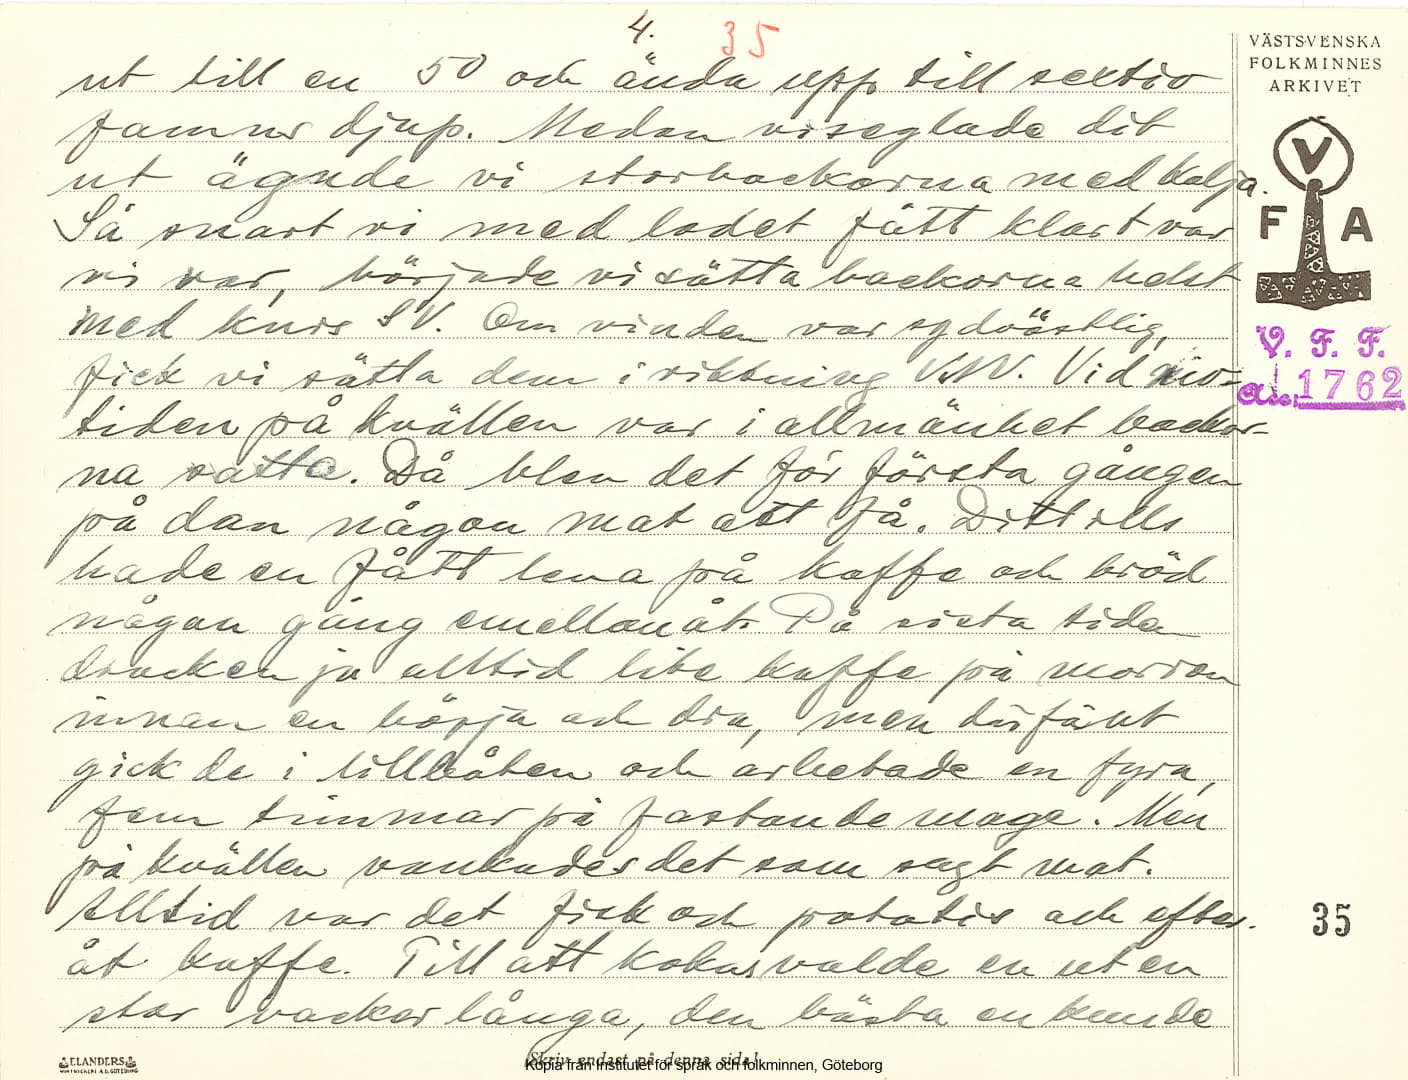 4. 35
ut till en 50 och ända upp till sextio
famnar djup. Medan vi seglade dit
ut ägnde vi storbackorna med kolja.
Så snart vi med lodet fått klart var
vi var, började vi sätta backorna helst
med kurs SV. Om vinden var sydvästlig,
fick vi sätta dem i riktning VNV. Vid nio-
tiden på kvällen var i allmänhet backor-
na satta. Då blev det för första gången
på dan någon mat att få. Dittills
hade en fått leva på kaffe och bröd
någon gång emellanåt. På sista tiden
dracken ju alltid lite kaffe på morron
innan en börja och dra, men dirförut
gick de i lillbåten och arbetade en fyra,
fem timmar på fastande mage. Men
på kvällen vankades det som sagt mat.
Alltid var det fisk och potatis och efter-
åt kaffe. Till att koka valde en ut en
stor vacker långa, den bästa en kunde
VÄSTSVENSKA
FOLKMINNES
ARKIVET
V
F A
V. F. F.
Acc. 1762
35
ELANDERS
BOKTRYCKERI A.B. GÖTEBORG
Skriv endast på denna sida!
Kopia från Institutet för språk och folkminnen, Göteborg